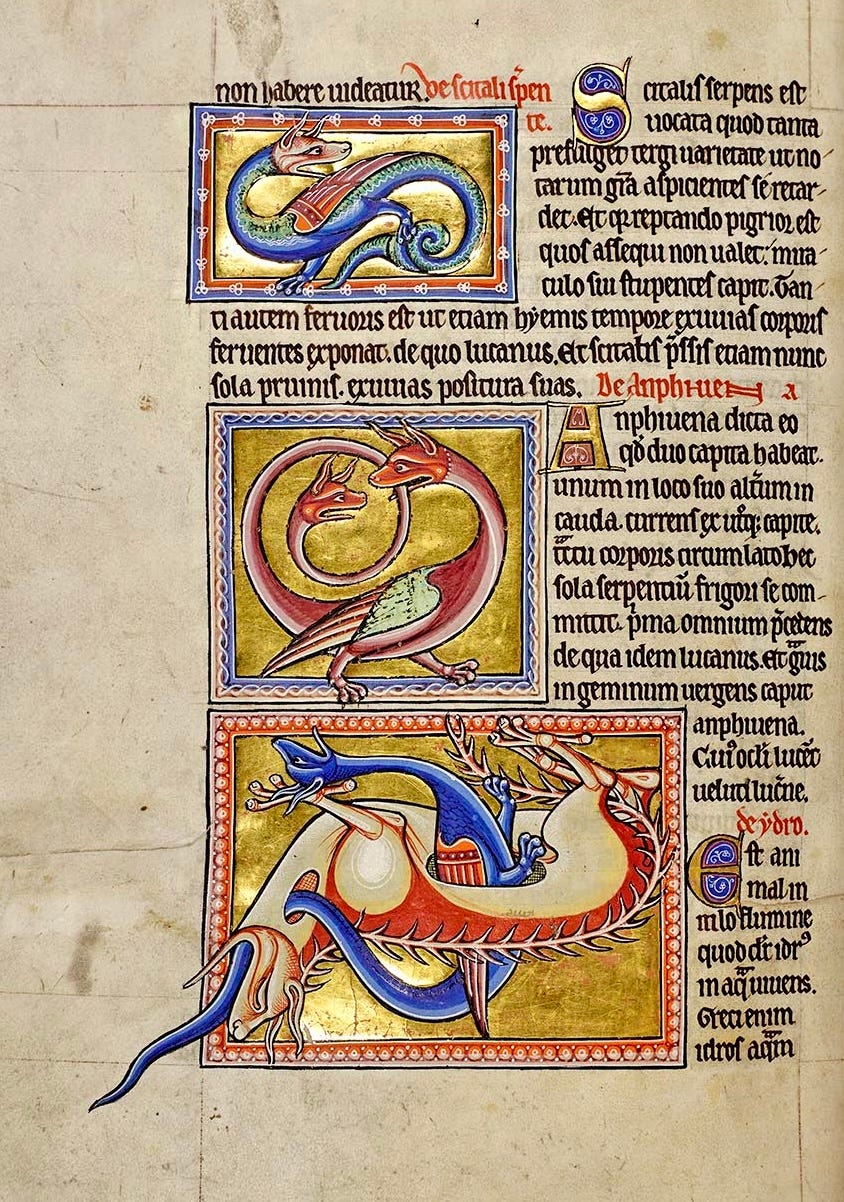 non habere uideatur. De scitali sp̄en
te.
Scitalis serpens est
uocata quod tanta
prefulget tergi uarietate ut no-
tarum gr̄a aspicientes se retar-
det. Et qr reptando pigrior est
quos assequi non ualet: mira-
culo sui stupentes capit. Tan-
ti autem feruoris est ut etiam hẏemis tempore exuuias corporis
feruentes exponat. de quo lucanus. Et scitalis sp̄sis etiam nunc
sola pruinis. exuuias positura suas. De Anphiuena
Anphiuena dicta eo
qd̄ duo capita habeat.
unum in loco suo altum in
cauda. currens ex utq; capite.
tctu corporis circumlato hec
sola serpentiū frigori se com-
mittit. p̄ma omnium p̄cedens
de qua idem lucanus. Et gͣuis
in geminum uergens caput
anphiuena.
Cui' oc̄li lucēt
ueluti luc̄ne.
de ẏdro.
Est ani
mal in
nilo flumine
quod dr̄ idr'
in aq̄ uiuens.
Greci enim
idros aqͣm